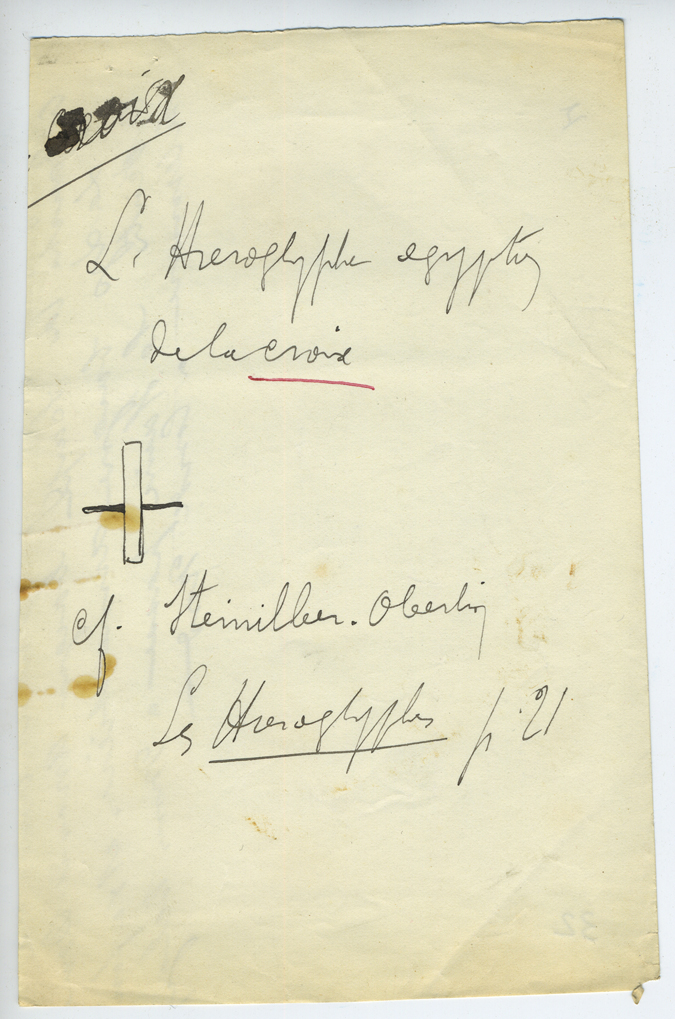 croix
L'Hieroglyphe egyptien
de la croix
cf. Steinilber-Oberlin
Les Hieroglyphes p. 21